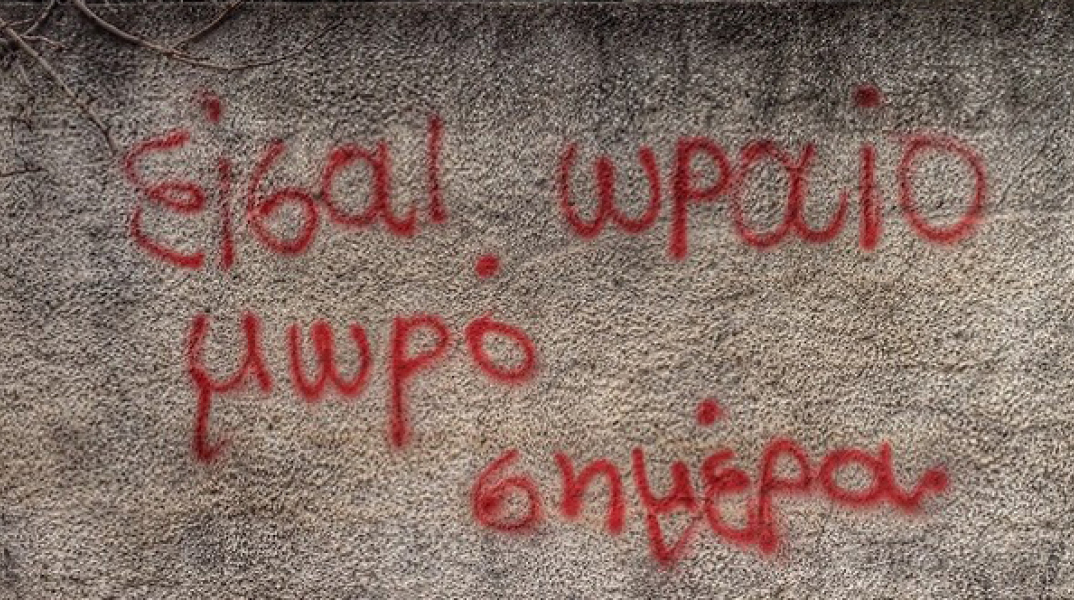 είσαι ωραίο
μωρό
σημέρα.